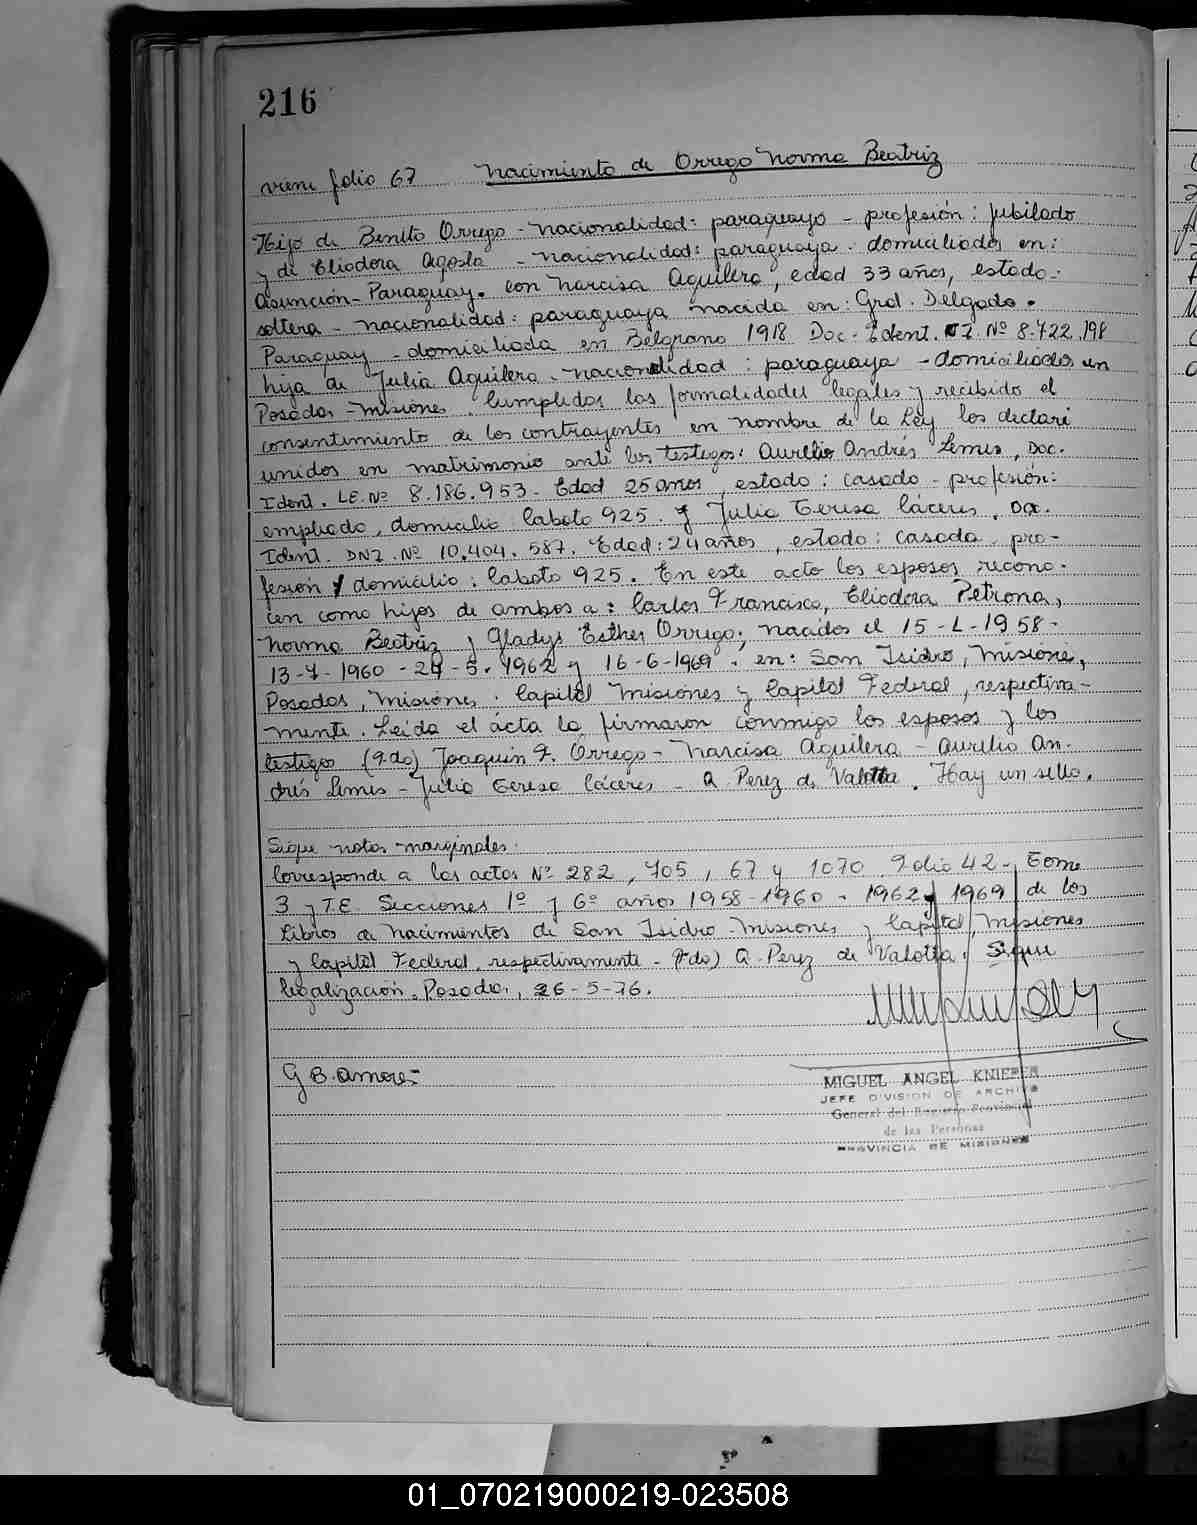 216
viene folio 67 Nacimiento de Orrego Norma Beatriz
Hijo de Benito Orrego - nacionalidad: paraguayo - profesión: jubilado
y de Eliodora Agosta - nacionalidad: paraguaya. domiciliados en:
Asunción - Paraguay. con Narcisa Aguilera, edad 33 años, estado:
soltera - nacionalidad: paraguaya nacida en: Gral. Delgado.
Paraguay - domiciliada en Belgrano 1918 Doc. Ident. C.I. Nº 8.422.198
hija de Julia Aguilera - nacionalidad: paraguaya - domiciliados en
Posadas - Misiones. Cumplidas las formalidades legales y recibido el
consentimiento de los contrayentes en nombre de la Ley los declaré
unidos en matrimonio ante los testigos: Aurelio Andrés Lemes, Doc.
Ident. L.E. Nº 8.186.953 - Edad 25 años, estado: casado - profesión:
empleado, domicilio Caboto 925. y Julia Teresa Cáceres. Doc.
Ident. DNI. Nº 10.404.587. Edad: 24 años, estado: casada, pro-
fesión y domicilio: Caboto 925. En este acto los esposos recono-
cen como hijos de ambos a: Carlos Francisco, Eliodora Petrona,
Norma Beatriz y Gladys Esther Orrego; nacidos el 15-1-1958-
13-7-1960 - 29-5-1962 y 16-6-1969. en: San Isidro, Misiones,
Posadas, Misiones. Capital Misiones y Capital Federal, respectiva-
mente. Leida el acta la firmaron conmigo los esposos y los
testigos (Fdo) Joaquín F. Orrego - Narcisa Aguilera - Aurelio An-
drés Lemes - Julia Teresa Cáceres - A. Perez de Valotta. Hay un sello.
Sigue notas marginales.
Corresponde a las actas Nº 282, 705, 67 y 1070. Folio 42 - Tomo
3 y T.E. Secciones 1º y 6º años 1958 - 1960 - 1962 y 1969 de los
Libros de Nacimientos de San Isidro - Misiones y Capital, Misiones
y Capital Federal, respectivamente - Fdo) A. Perez de Valotta. Sigue
legalización. Posadas, 26-5-76.
G B. Amores
MIGUEL ANGEL KNIEPER
JEFE DIVISION DE ARCHIVO
General del Registro Provincial
de las Personas
PROVINCIA DE MISIONES
01_070219000219-023508